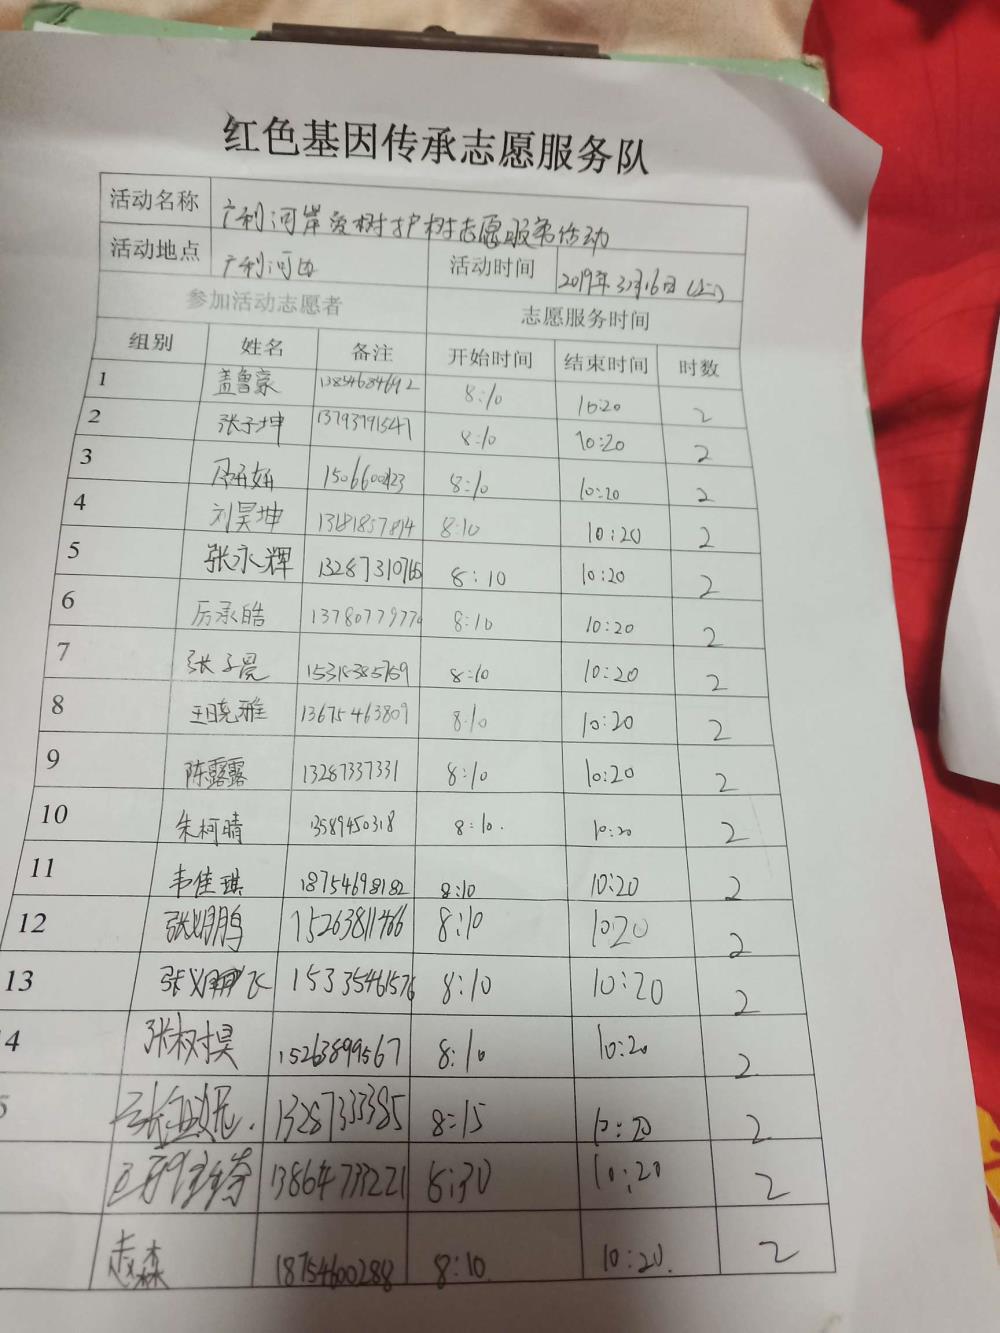 红色基因传承志愿服务队
活动名称 广利河岸爱树护树志愿服务活动
活动地点 广利河 活动时间 2019年3月16日
参加活动志愿者 志愿服务时间
组别 姓名 备注 开始时间 结束时间 时数
1 盖鲁豪 13854684692 8:10 10:20 2
2 张子坤 13793791547 8:10 10:20 2
3 8:10 10:20 2
4 刘昊坤 13181857814 8:10 10:20 2
5 张永辉 13287310765 8:10 10:20 2
6 厉承皓 8:10 10:20 2
7 张子晨 15318385759 8:10 10:20 2
8 王晓雅 13675463809 8:10 10:20 2
9 陈露露 13287337331 8:10 10:20 2
10 朱柯晴 13589450318 8:10. 10:20 2
11 韦佳琪 18754698182 8:10 10:20 2
12 15263811466 8:10 10:20 2
13 15335461576 8:10 10:20 2
4 张树昊 15263899567 8:10 10:20 2
5 13287333385 8:15 10:20 2
13864733221 8:30 10:20 2
赵森 18754600288 8:10. 10:20. 2